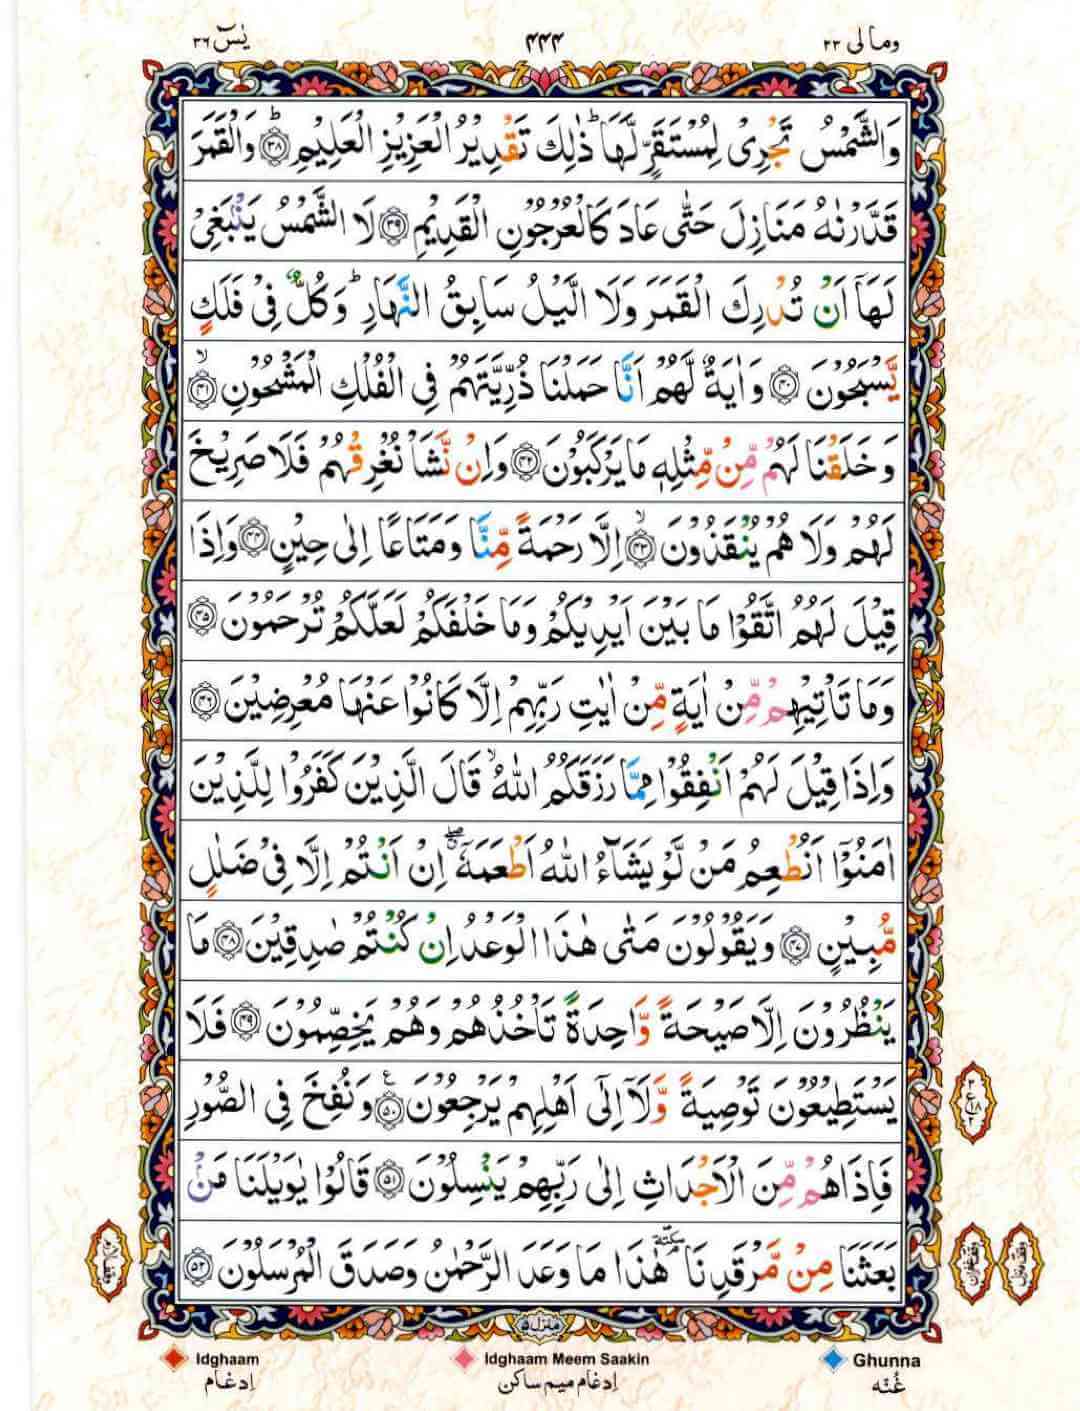 وما لی ۲۳
۴۴۴
یٰسٓ ۳۶
وَالشَّمْسُ تَجْرِیْ لِمُسْتَقَرٍّ لَّهَا ؕ ذٰلِكَ تَقْدِیْرُ الْعَزِیْزِ الْعَلِیْمِ ؕ﴿۳۸﴾ وَالْقَمَرَ
قَدَّرْنٰهُ مَنَازِلَ حَتّٰی عَادَ كَالْعُرْجُوْنِ الْقَدِیْمِ ﴿۳۹﴾ لَا الشَّمْسُ یَنْۢبَغِیْ
لَهَاۤ اَنْ تُدْرِكَ الْقَمَرَ وَلَا الَّیْلُ سَابِقُ النَّهَارِ ؕ وَكُلٌّ فِیْ فَلَكٍ
یَّسْبَحُوْنَ ﴿۴۰﴾ وَاٰیَةٌ لَّهُمْ اَنَّا حَمَلْنَا ذُرِّیَّتَهُمْ فِی الْفُلْكِ الْمَشْحُوْنِ ۙ﴿۴۱﴾
وَخَلَقْنَا لَهُمْ مِّنْ مِّثْلِهٖ مَا یَرْكَبُوْنَ ﴿۴۲﴾ وَاِنْ نَّشَاْ نُغْرِقْهُمْ فَلَا صَرِیْخَ
لَهُمْ وَلَا هُمْ یُنْقَذُوْنَ ۙ﴿۴۳﴾ اِلَّا رَحْمَةً مِّنَّا وَمَتَاعًا اِلٰی حِیْنٍ ﴿۴۴﴾ وَاِذَا
قِیْلَ لَهُمُ اتَّقُوْا مَا بَیْنَ اَیْدِیْكُمْ وَمَا خَلْفَكُمْ لَعَلَّكُمْ تُرْحَمُوْنَ ﴿۴۵﴾
وَمَا تَاْتِیْهِمْ مِّنْ اٰیَةٍ مِّنْ اٰیٰتِ رَبِّهِمْ اِلَّا كَانُوْا عَنْهَا مُعْرِضِیْنَ ﴿۴۶﴾
وَاِذَا قِیْلَ لَهُمْ اَنْفِقُوْا مِمَّا رَزَقَكُمُ اللّٰهُ ۙ قَالَ الَّذِیْنَ كَفَرُوْا لِلَّذِیْنَ
اٰمَنُوْۤا اَنُطْعِمُ مَنْ لَّوْ یَشَآءُ اللّٰهُ اَطْعَمَهٗۤ ۖۗ اِنْ اَنْتُمْ اِلَّا فِیْ ضَلٰلٍ
مُّبِیْنٍ ﴿۴۷﴾ وَیَقُوْلُوْنَ مَتٰی هٰذَا الْوَعْدُ اِنْ كُنْتُمْ صٰدِقِیْنَ ﴿۴۸﴾ مَا
یَنْظُرُوْنَ اِلَّا صَیْحَةً وَّاحِدَةً تَاْخُذُهُمْ وَهُمْ یَخِصِّمُوْنَ ﴿۴۹﴾ فَلَا
یَسْتَطِیْعُوْنَ تَوْصِیَةً وَّلَاۤ اِلٰۤی اَهْلِهِمْ یَرْجِعُوْنَ ﴿۵۰﴾ ع وَنُفِخَ فِی الصُّوْرِ
فَاِذَا هُمْ مِّنَ الْاَجْدَاثِ اِلٰی رَبِّهِمْ یَنْسِلُوْنَ ﴿۵۱﴾ قَالُوْا یٰوَیْلَنَا مَنْۢ
بَعَثَنَا مِنْ مَّرْقَدِنَا ٚ سكتة هٰذَا مَا وَعَدَ الرَّحْمٰنُ وَصَدَقَ الْمُرْسَلُوْنَ ﴿۵۲﴾
منزل ۵
Idghaam
Idghaam Meem Saakin
Ghunna
اِدغام
اِدغام میم ساکن
غُنّه